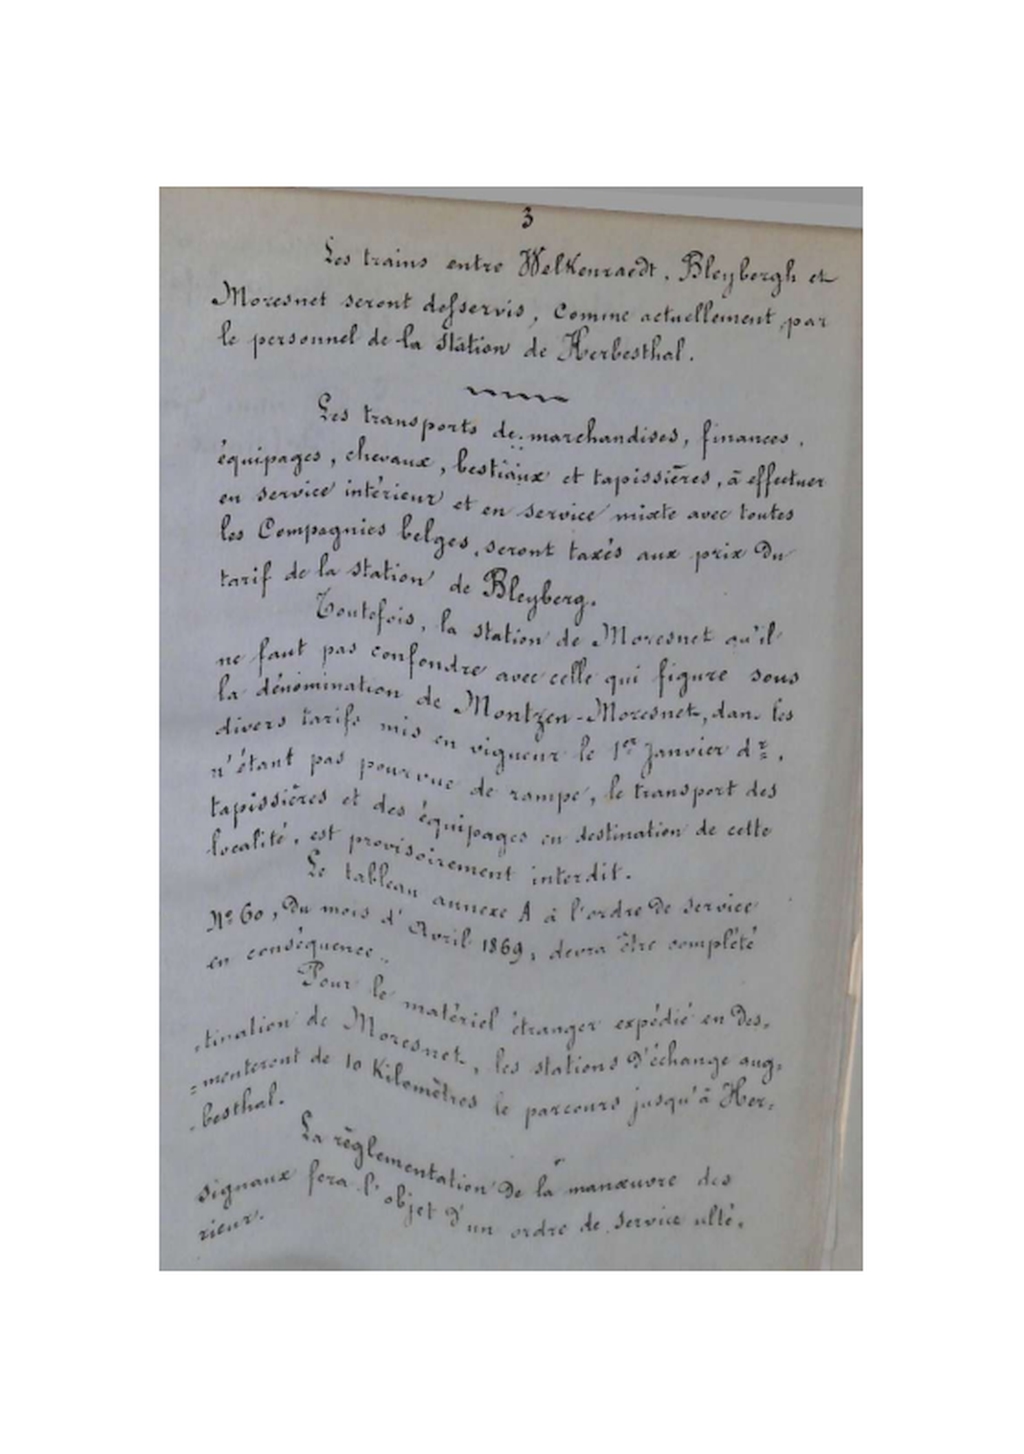 3
Les trains entre Welkenraedt, Bleybergh et
Moresnet seront desservis, comme actuellement, par
le personnel de la Station de Herbesthal.
Les transports de marchandises, finances,
équipages, chevaux, bestiaux et tapissières, à effectuer
en service intérieur et en service mixte avec toutes
les Compagnies belges, seront taxés aux prix du
tarif de la station de Bleyberg.
Toutefois, la station de Moresnet qu'il
ne faut pas confondre avec celle qui figure sous
la dénomination de Montzen-Moresnet, dans les
divers tarifs mis en vigueur le 1er Janvier dr,
n'étant pas pourvue de rampe, le transport des
tapissières et des équipages en destination de cette
localité, est provisoirement interdit.
Le tableau annexe A à l'ordre de service
No 60, du mois d'Avril 1869, devra être complété
en conséquence.
Pour le matériel étranger expédié en des-
tination de Moresnet, les stations d'échange aug-
=menteront de 10 Kilomètres le parcours jusqu'à Her-
besthal.
La règlementation de la manœuvre des
signaux fera l'objet d'un ordre de service ulté-
rieur.